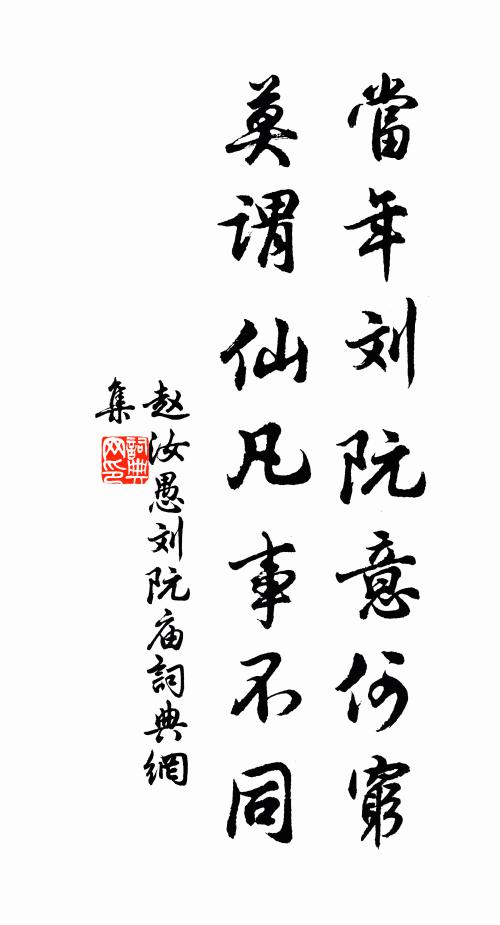 當年刘阮意何窮
莫谓仙凡事不同
赵汝愚刘阮庙詞典網
集
詞典
网印